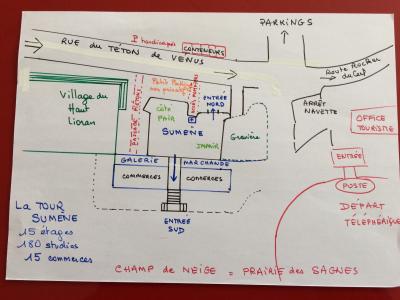 PARKINGS
RUE du TÉTON DE VENUS
P handicapés
CONTENEURS
Route Rocher
du Cerf
Village du
Haut
Lioran
Petit Parking
ENTRÉE
NORD
côté
PAIR
SUMENE
IMPAIR
Gravière
ARRÊT
NAVETTE
OFFICE
TOURISTIQ
ENTRÉE
POSTE
DÉPART
TÉLÉPHERIQUE
GALERIE
MARCHANDE
COMMERCES
COMMERCES
ENTREE
SUD
La TOUR
SUMENE
15 étages
180 studios
15 commerces
CHAMP de NEIGE = PRAIRIE des SAGNES